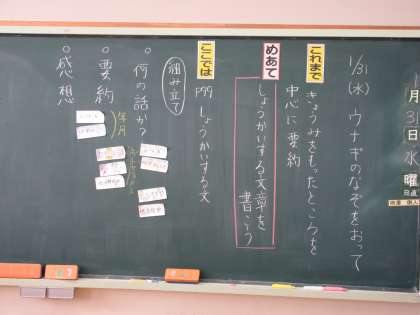 1/31(水) ウナギのなぞをおって
これまで
きょうみをもったところを
中心に要約
めあて
しょうかいする文章を
書こう
ここでは
P99 しょうかいする文
組み立て
○何の話か?
○要約
年月
○感想
月
31
日
水
曜
日直